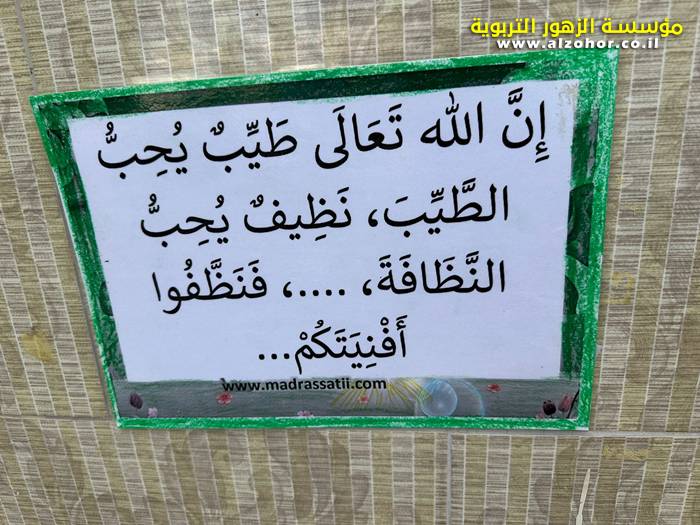 مؤسسة الزهور التربوية
www.alzohor.co.il
إِنَّ الله تَعَالَى طَيِّبٌ يُحِبُّ
الطَّيِّبَ، نَظِيفٌ يُحِبُّ
النَّظَافَةَ، ....، فَنَظَّفُوا
أَفْنِيَتَكُمْ...
www.madrassatii.com